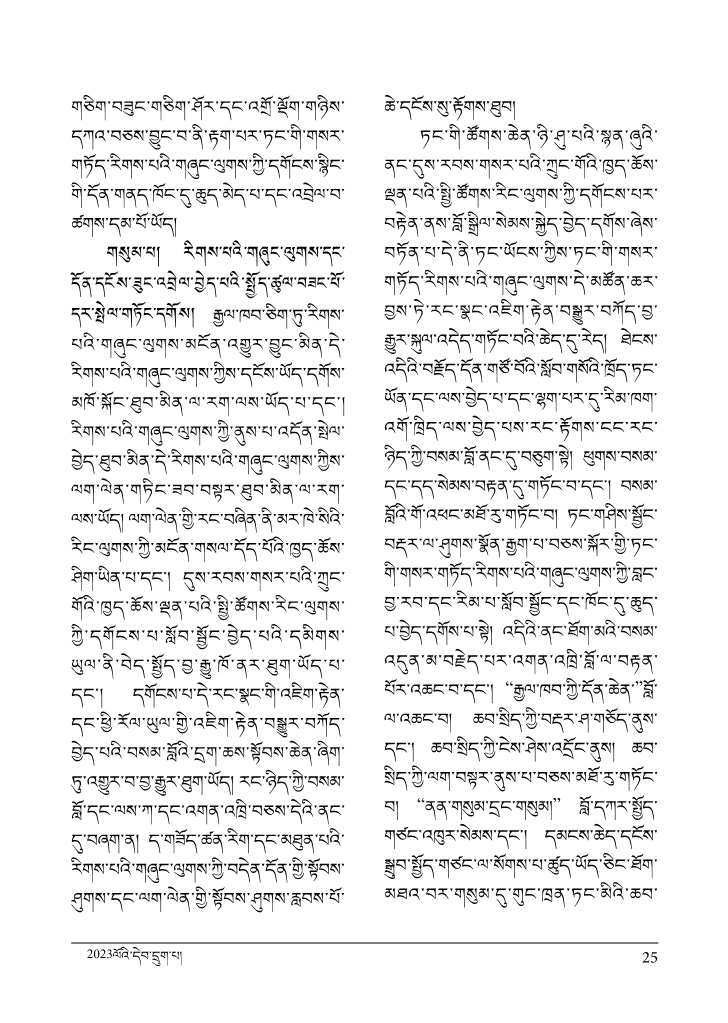 གཅིག་བཟུང་གཅིག་ཤོར་དང་འགྲོ་ལྡོག་གཉིས་
དཀའ་བཅས་བྱུང་བ་ནི་རྟག་པར་ཏང་གི་གསར་
གཏོད་རིགས་པའི་གཞུང་ལུགས་ཀྱི་དགོངས་སྙིང་
གི་དོན་གནད་ཁོང་དུ་ཆུད་མེད་པ་དང་འབྲེལ་བ་
ཚགས་དམ་པོ་ཡོད།
གསུམ་པ། རིགས་པའི་གཞུང་ལུགས་དང་
དོན་དངོས་ཟུང་འབྲེལ་བྱེད་པའི་སྤྱོད་ཚུལ་བཟང་པོ་
དར་སྤེལ་གཏོང་དགོས། རྒྱལ་ཁབ་ཅིག་ཏུ་རིགས་
པའི་གཞུང་ལུགས་མངོན་འགྱུར་བྱུང་མིན་དེ་
རིགས་པའི་གཞུང་ལུགས་ཀྱིས་དངོས་ཡོད་དགོས་
མཁོ་སྐོང་ཐུབ་མིན་ལ་རག་ལས་ཡོད་པ་དང་།
རིགས་པའི་གཞུང་ལུགས་ཀྱི་ནུས་པ་འདོན་སྤེལ་
བྱེད་ཐུབ་མིན་དེ་རིགས་པའི་གཞུང་ལུགས་ཀྱིས་
ལག་ལེན་གཏིང་ཟབ་བསྟར་ཐུབ་མིན་ལ་རག་
ལས་ཡོད། ལག་ལེན་གྱི་རང་བཞིན་ནི་མར་ཁེ་སིའི་
རིང་ལུགས་ཀྱི་མངོན་གསལ་དོད་པོའི་ཁྱད་ཆོས་
ཤིག་ཡིན་པ་དང་། དུས་རབས་གསར་པའི་ཀྲུང་
གོའི་ཁྱད་ཆོས་ལྡན་པའི་སྤྱི་ཚོགས་རིང་ལུགས་
ཀྱི་དགོངས་པ་སློབ་སྦྱོང་བྱེད་པའི་དམིགས་
ཡུལ་ནི་བེད་སྤྱོད་བྱ་རྒྱུ་ཁོ་ནར་ཐུག་ཡོད་པ་
དང་། དགོངས་པ་དེ་རང་སྣང་གི་འཇིག་རྟེན་
དང་ཕྱི་རོལ་ཡུལ་གྱི་འཇིག་རྟེན་བསྒྱུར་བཀོད་
བྱེད་པའི་བསམ་བློའི་དྲག་ཆས་སྟོབས་ཆེན་ཞིག་
ཏུ་འགྱུར་བ་བྱ་རྒྱུར་ཐུག་ཡོད། རང་ཉིད་ཀྱི་བསམ་
བློ་དང་ལས་ཀ་དང་འགན་འཁྲི་བཅས་དེའི་ནང་
དུ་བཞག་ན། ད་གཟོད་ཚན་རིག་དང་མཐུན་པའི་
རིགས་པའི་གཞུང་ལུགས་ཀྱི་བདེན་དོན་གྱི་སྟོབས་
ཤུགས་དང་ལག་ལེན་གྱི་སྟོབས་ཤུགས་རླབས་པོ་
ཆེ་དངོས་སུ་རྟོགས་ཐུབ།
ཏང་གི་ཚོགས་ཆེན་ཉི་ཤུ་པའི་སྙན་ཞུའི་
ནང་དུས་རབས་གསར་པའི་ཀྲུང་གོའི་ཁྱད་ཆོས་
ལྡན་པའི་སྤྱི་ཚོགས་རིང་ལུགས་ཀྱི་དགོངས་པར་
བརྟེན་ནས་བློ་སྒྲིལ་སེམས་སྐྱེད་བྱེད་དགོས་ཞེས་
བཏོན་པ་དེ་ནི་ཏང་ཡོངས་ཀྱིས་ཏང་གི་གསར་
གཏོད་རིགས་པའི་གཞུང་ལུགས་དེ་མཚོན་ཆར་
བྱས་ཏེ་རང་སྣང་འཇིག་རྟེན་བསྒྱུར་བཀོད་བྱ་
རྒྱུར་སྐུལ་འདེད་གཏོང་བའི་ཆེད་དུ་རེད། ཐེངས་
འདིའི་བརྗོད་དོན་གཙོ་བོའི་སློབ་གསོའི་ཁྲོད་ཏང་
ཡོན་དང་ལས་བྱེད་པ་དང་ལྷག་པར་དུ་རིམ་ཁག་
འགོ་ཁྲིད་ལས་བྱེད་པས་རང་རྟོགས་ངང་རང་
ཉིད་ཀྱི་བསམ་བློ་ནང་དུ་བཅུག་སྟེ། ཕུགས་བསམ་
དང་དད་སེམས་བརྟན་དུ་གཏོང་བ་དང་། བསམ་
བློའི་གོ་འཕང་མཐོ་རུ་གཏོང་བ། ཏང་གཤིས་སྦྱོང་
བརྡར་ལ་ཤུགས་སྣོན་རྒྱག་པ་བཅས་སྐོར་གྱི་ཏང་
གི་གསར་གཏོད་རིགས་པའི་གཞུང་ལུགས་ཀྱི་བླང་
བྱ་རབ་དང་རིམ་པ་སློབ་སྦྱོང་དང་ཁོང་དུ་ཆུད་
པ་བྱེད་དགོས་པ་སྟེ། འདིའི་ནང་ཐོག་མའི་བསམ་
འདུན་མ་བརྗེད་པར་འགན་འཁྲི་བློ་ལ་བརྟན་
པོར་འཆང་བ་དང་། “རྒྱལ་ཁབ་ཀྱི་དོན་ཆེན་”བློ་
ལ་འཆང་བ། ཆབ་སྲིད་ཀྱི་བརྡར་ཤ་གཅོད་ནུས་
དང་། ཆབ་སྲིད་ཀྱི་ངེས་ཤེས་འདྲོང་ནུས། ཆབ་
སྲིད་ཀྱི་ལག་བསྟར་ནུས་པ་བཅས་མཐོ་རུ་གཏོང་
བ། “ནན་གསུམ་དྲང་གསུམ།” བློ་དཀར་སྤྱོད་
གཙང་འཁུར་སེམས་དང་། དམངས་ཆེད་དངོས་
སྒྲུབ་སྤྱོད་གཙང་ལ་སོགས་པ་ཚུད་ཡོད་ཅིང་ཐོག་
མཐའ་བར་གསུམ་དུ་གུང་ཁྲན་ཏང་མིའི་ཆབ་
2023ལོའི་དེབ་དྲུག་པ།
25